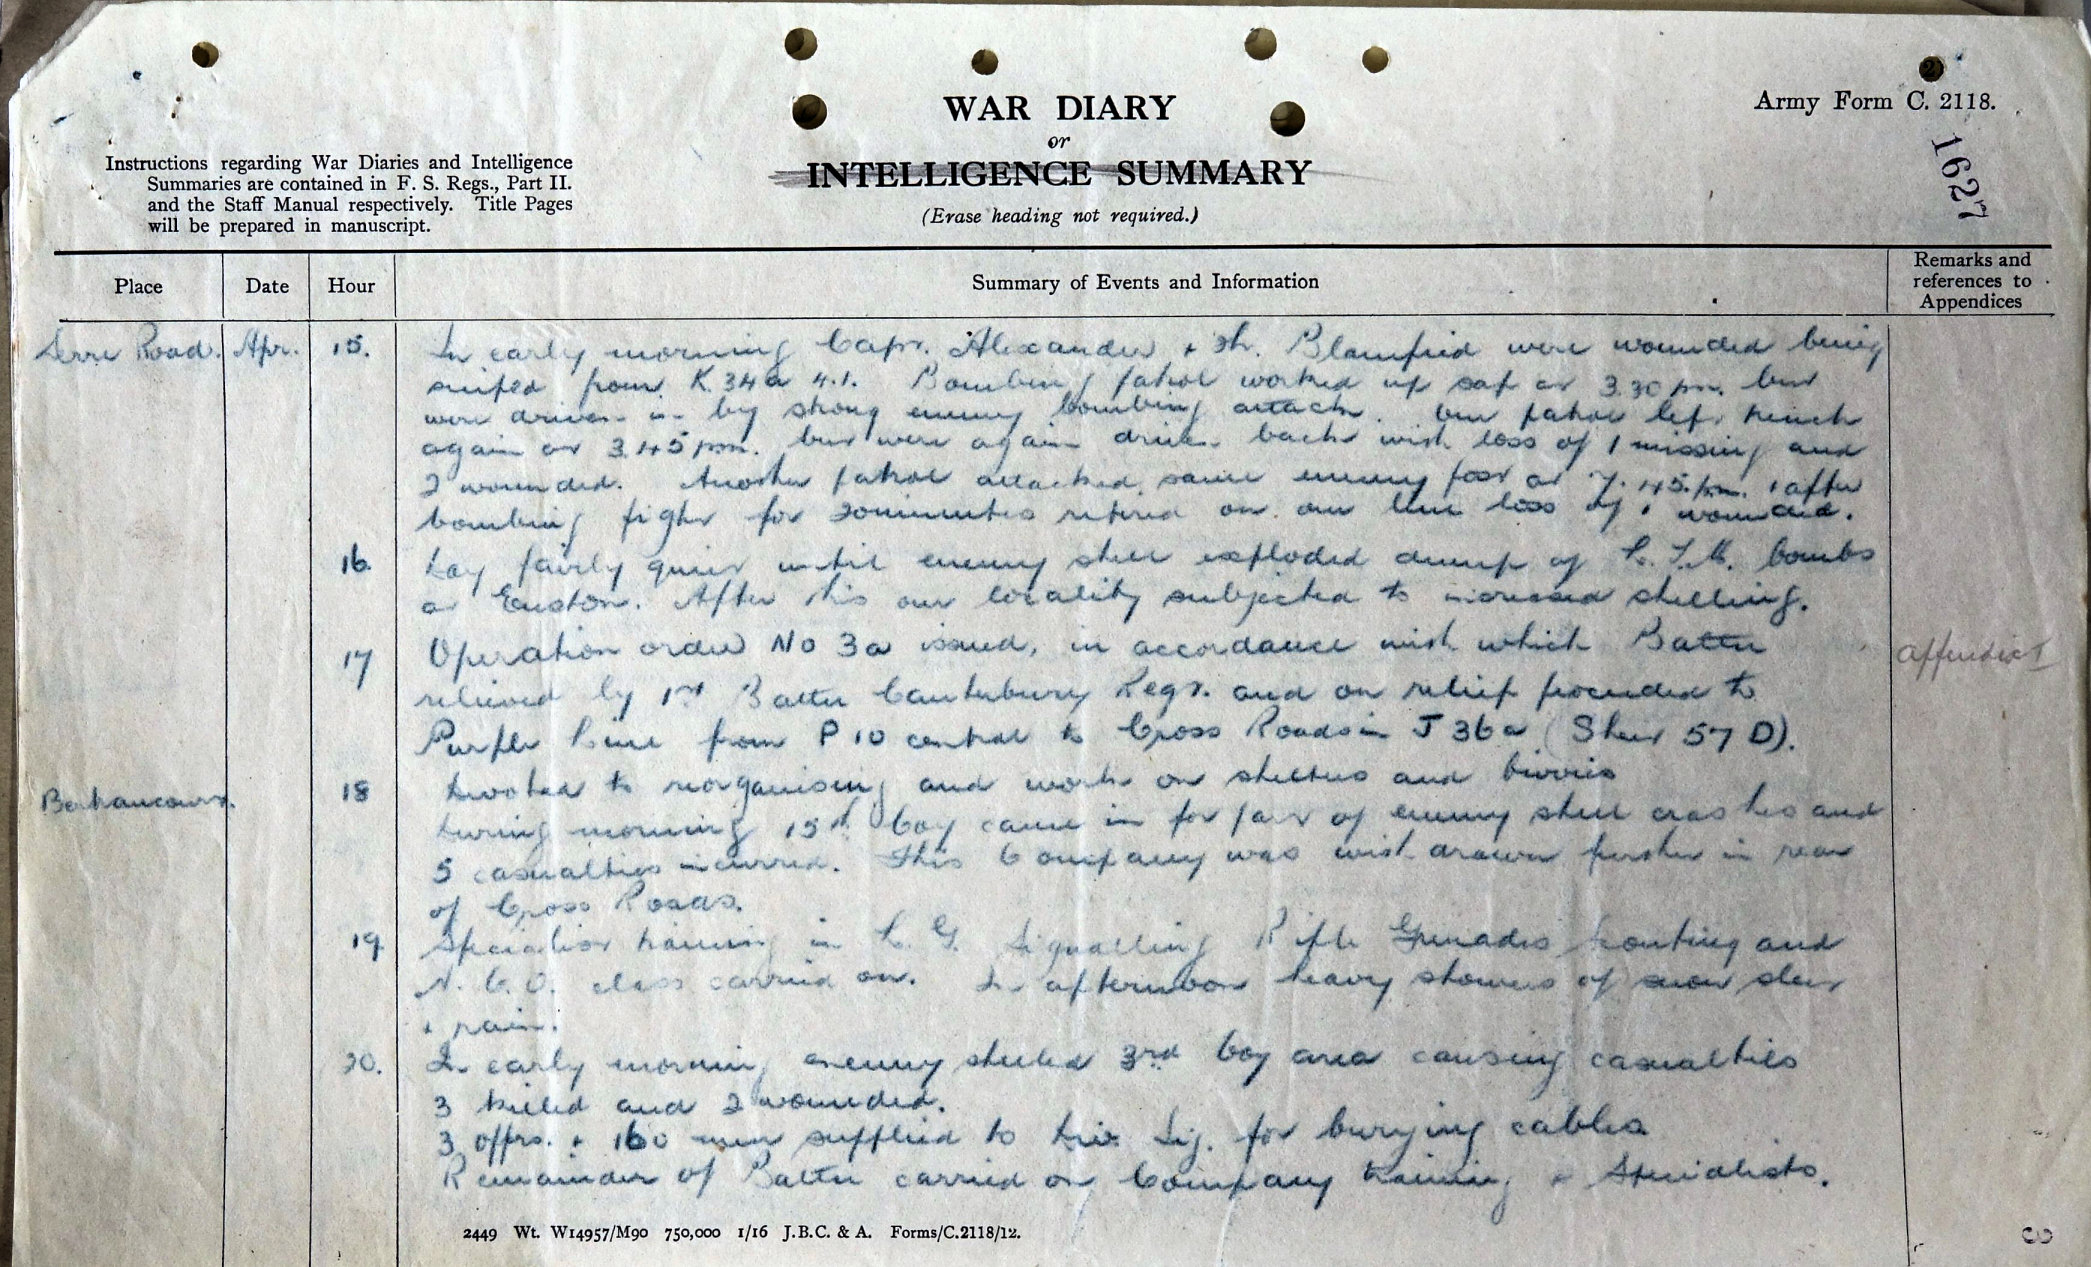 Army Form C. 2118.
WAR DIARY
or
INTELLIGENCE SUMMARY
(Erase heading not required.)
1627
Instructions regarding War Diaries and Intelligence
Summaries are contained in F. S. Regs., Part II.
and the Staff Manual respectively. Title Pages
will be prepared in manuscript.
Place Date Hour Summary of Events and Information Remarks and
references to
Appendices
Serre Road. Apr. 15. In early morning Capt. Alexander + Lt. were wounded being
sniped from K.34a 4.1. Bombing patrol worked up sap at 3.30 pm. but
were driven in by strong enemy bombing attack. Our patrol left trench
again at 3.45 pm. but were again driven back with loss of 1 missing and
2 wounded. Another patrol attacked same enemy post at 7.45. pm. + after
bombing fight for 20 minutes retired on our line loss of 1 wounded.
16. Day fairly quiet until enemy shell exploded dump of L.T.M. bombs
at Euston. After this our locality subjected to increased shelling.
17 Operation order No 3a issued, in accordance with which Battn
relieved by 1st Battn Canterbury Regt. and on relief proceeded to
Purple Line from P 10 central to Cross Roads in J 36a (Sheet 57 D).
appendix I
Bertrancourt. 18 Devoted to reorganising and work on shelters and bivvies
During morning 15th Coy came in for part of enemy shell crashes and
5 casualties incurred. This Company was withdrawn further in rear
of Cross Roads.
19. Specialist training in L. G. Signalling Rifle Grenades Scouting and
N.C.O. class carried on. In afternoon heavy showers of snow sleet
+ rain.
20. In early morning enemy shelled 3rd Coy area causing casualties
3 killed and 2 wounded.
3 offrs. + 160 men supplied to Div. Sig. for burying cables
Remainder of Battn carried on Company training + Specialists.
2449 Wt. W14957/M90 750,000 1/16 J.B.C. & A. Forms/C.2118/12.
3